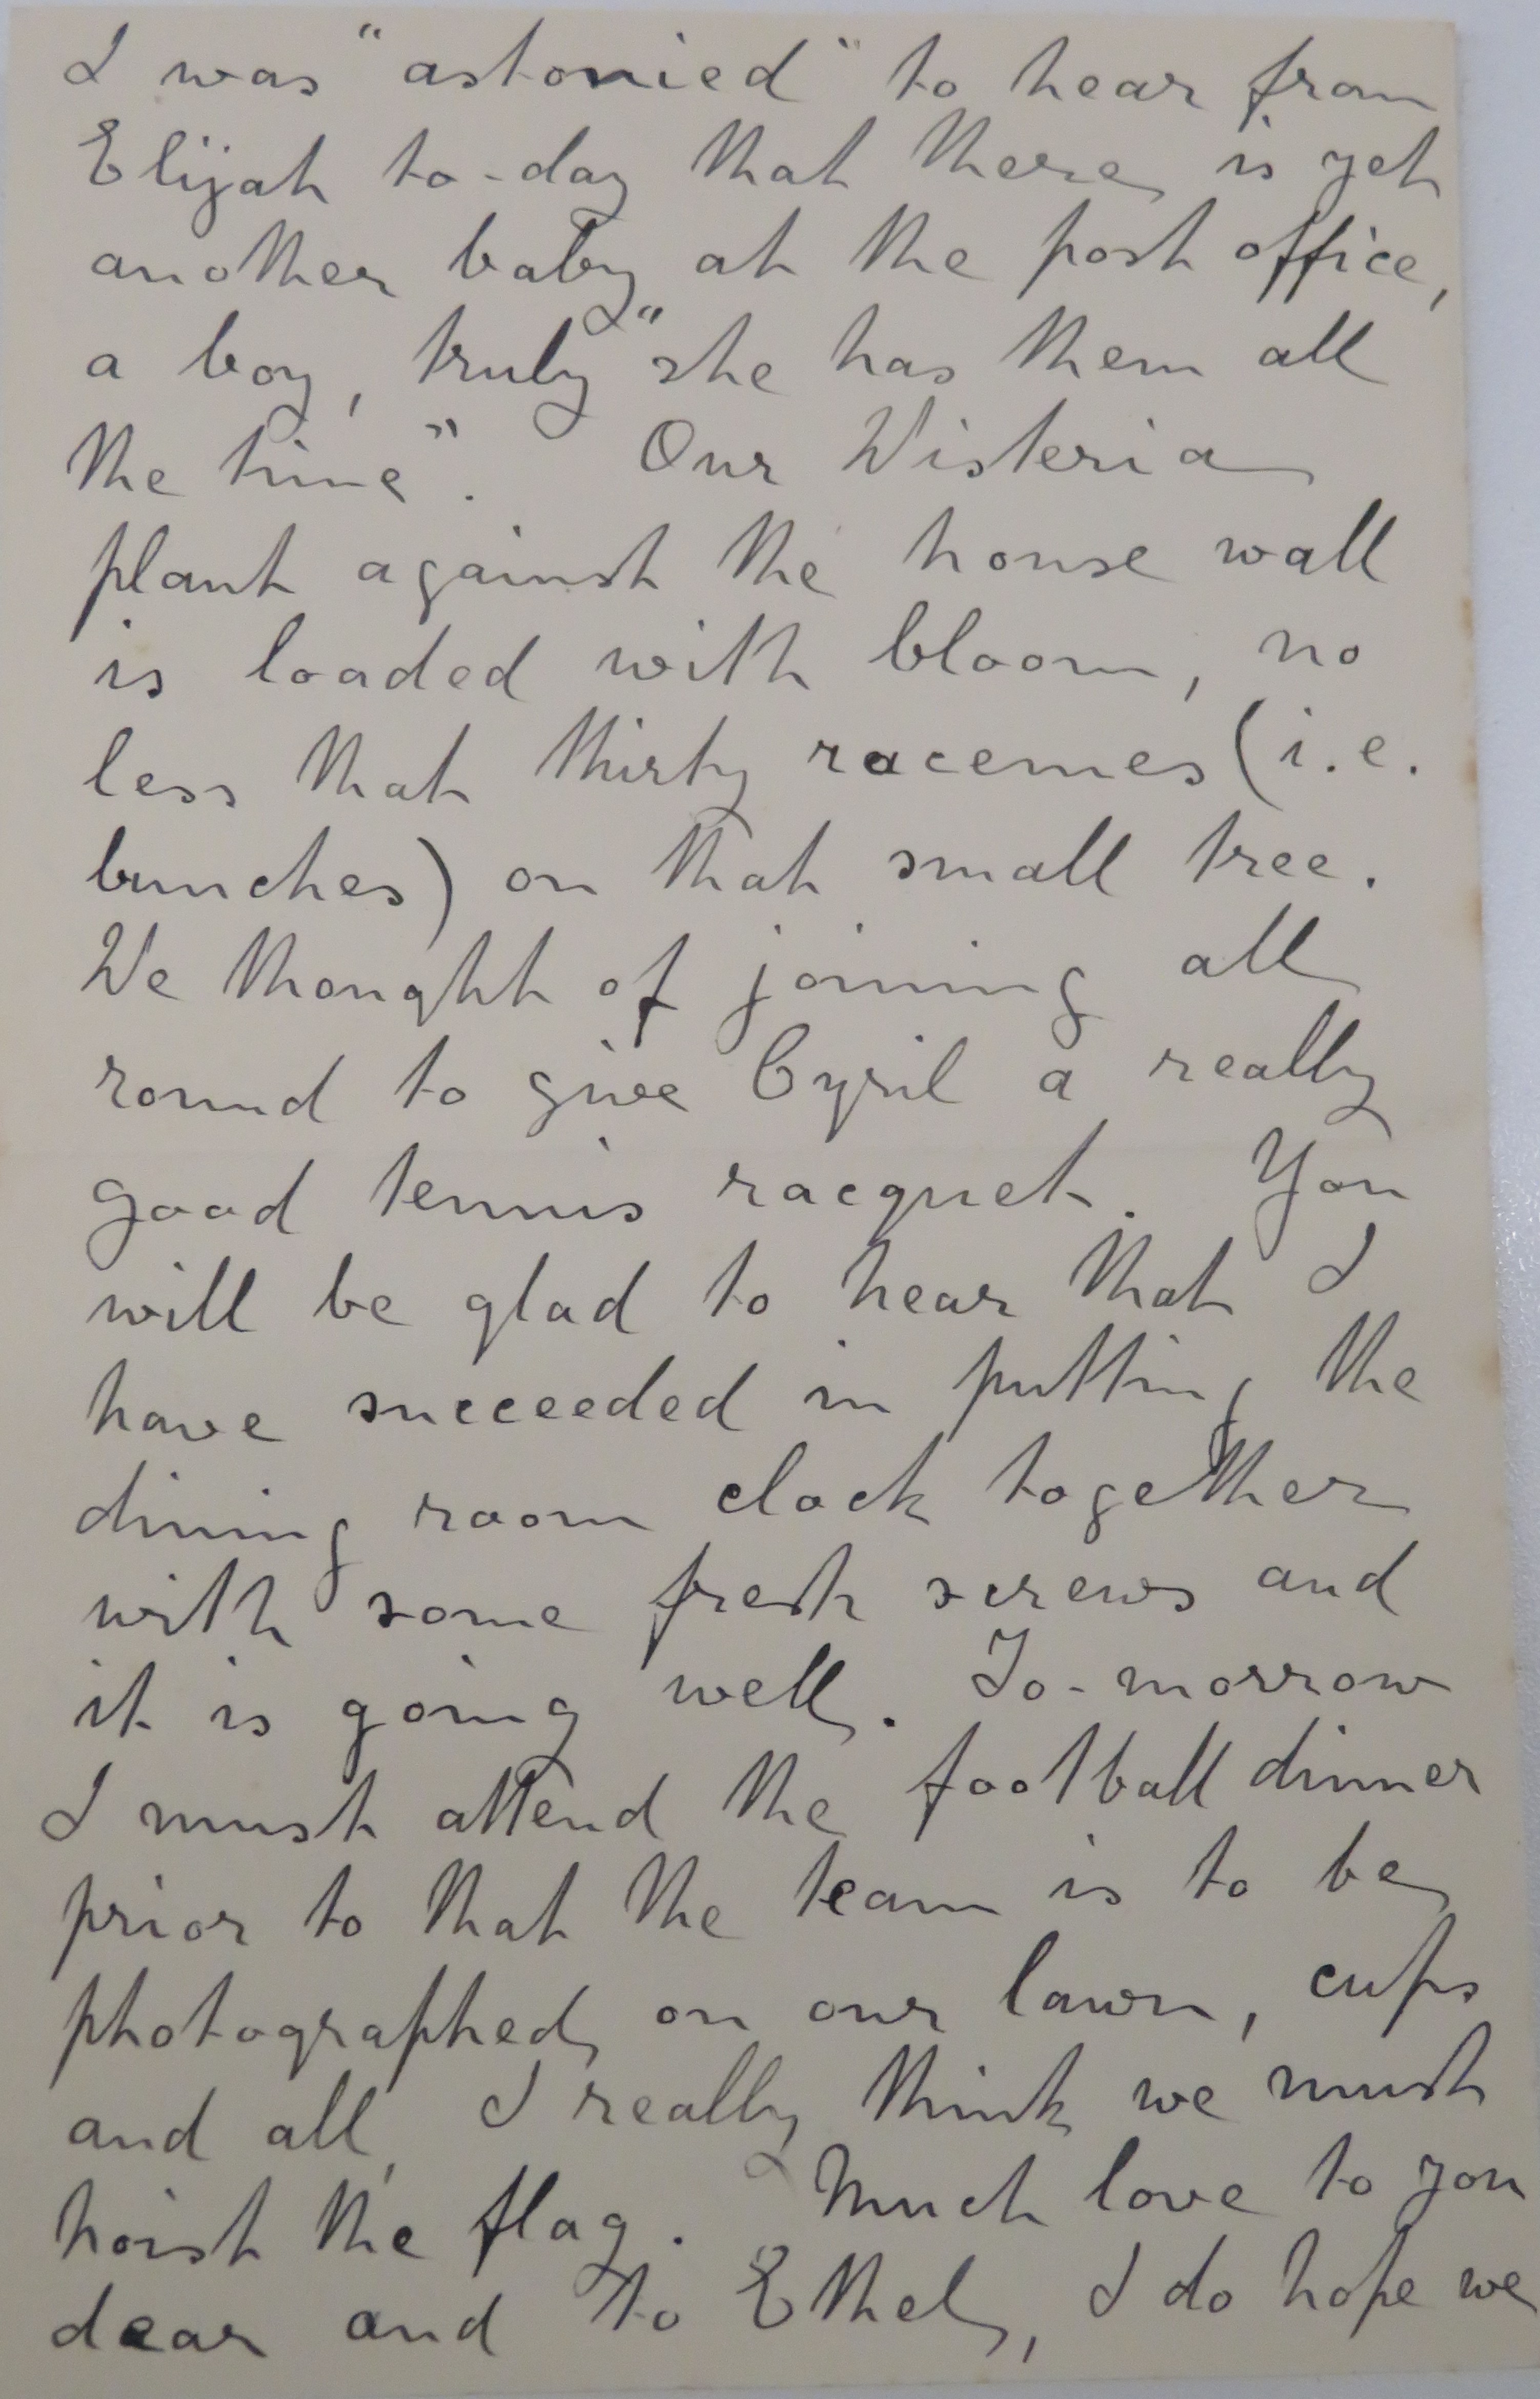 I was "astonied" to hear from
Elijah to-day that there is yet
another baby at the post office,
a boy, truly "she has them all
the time". Our Wisteria
plant against the house wall
is loaded with bloom, no
less that thirty racemes (i.e.
bunches) on that small tree.
We thought of joining all
round to give Cyril a really
good tennis racquet. You
will be glad to hear that I
have succeeded in putting the
dining room clock together
with some fresh screws and
it is going well. To-morrow
I must attend the football dinner
prior to that the team is to be
photographed on our lawn, cups
and all, I really think we must
hoist the flag. Much love to you
dear and to Ethel, I do hope we